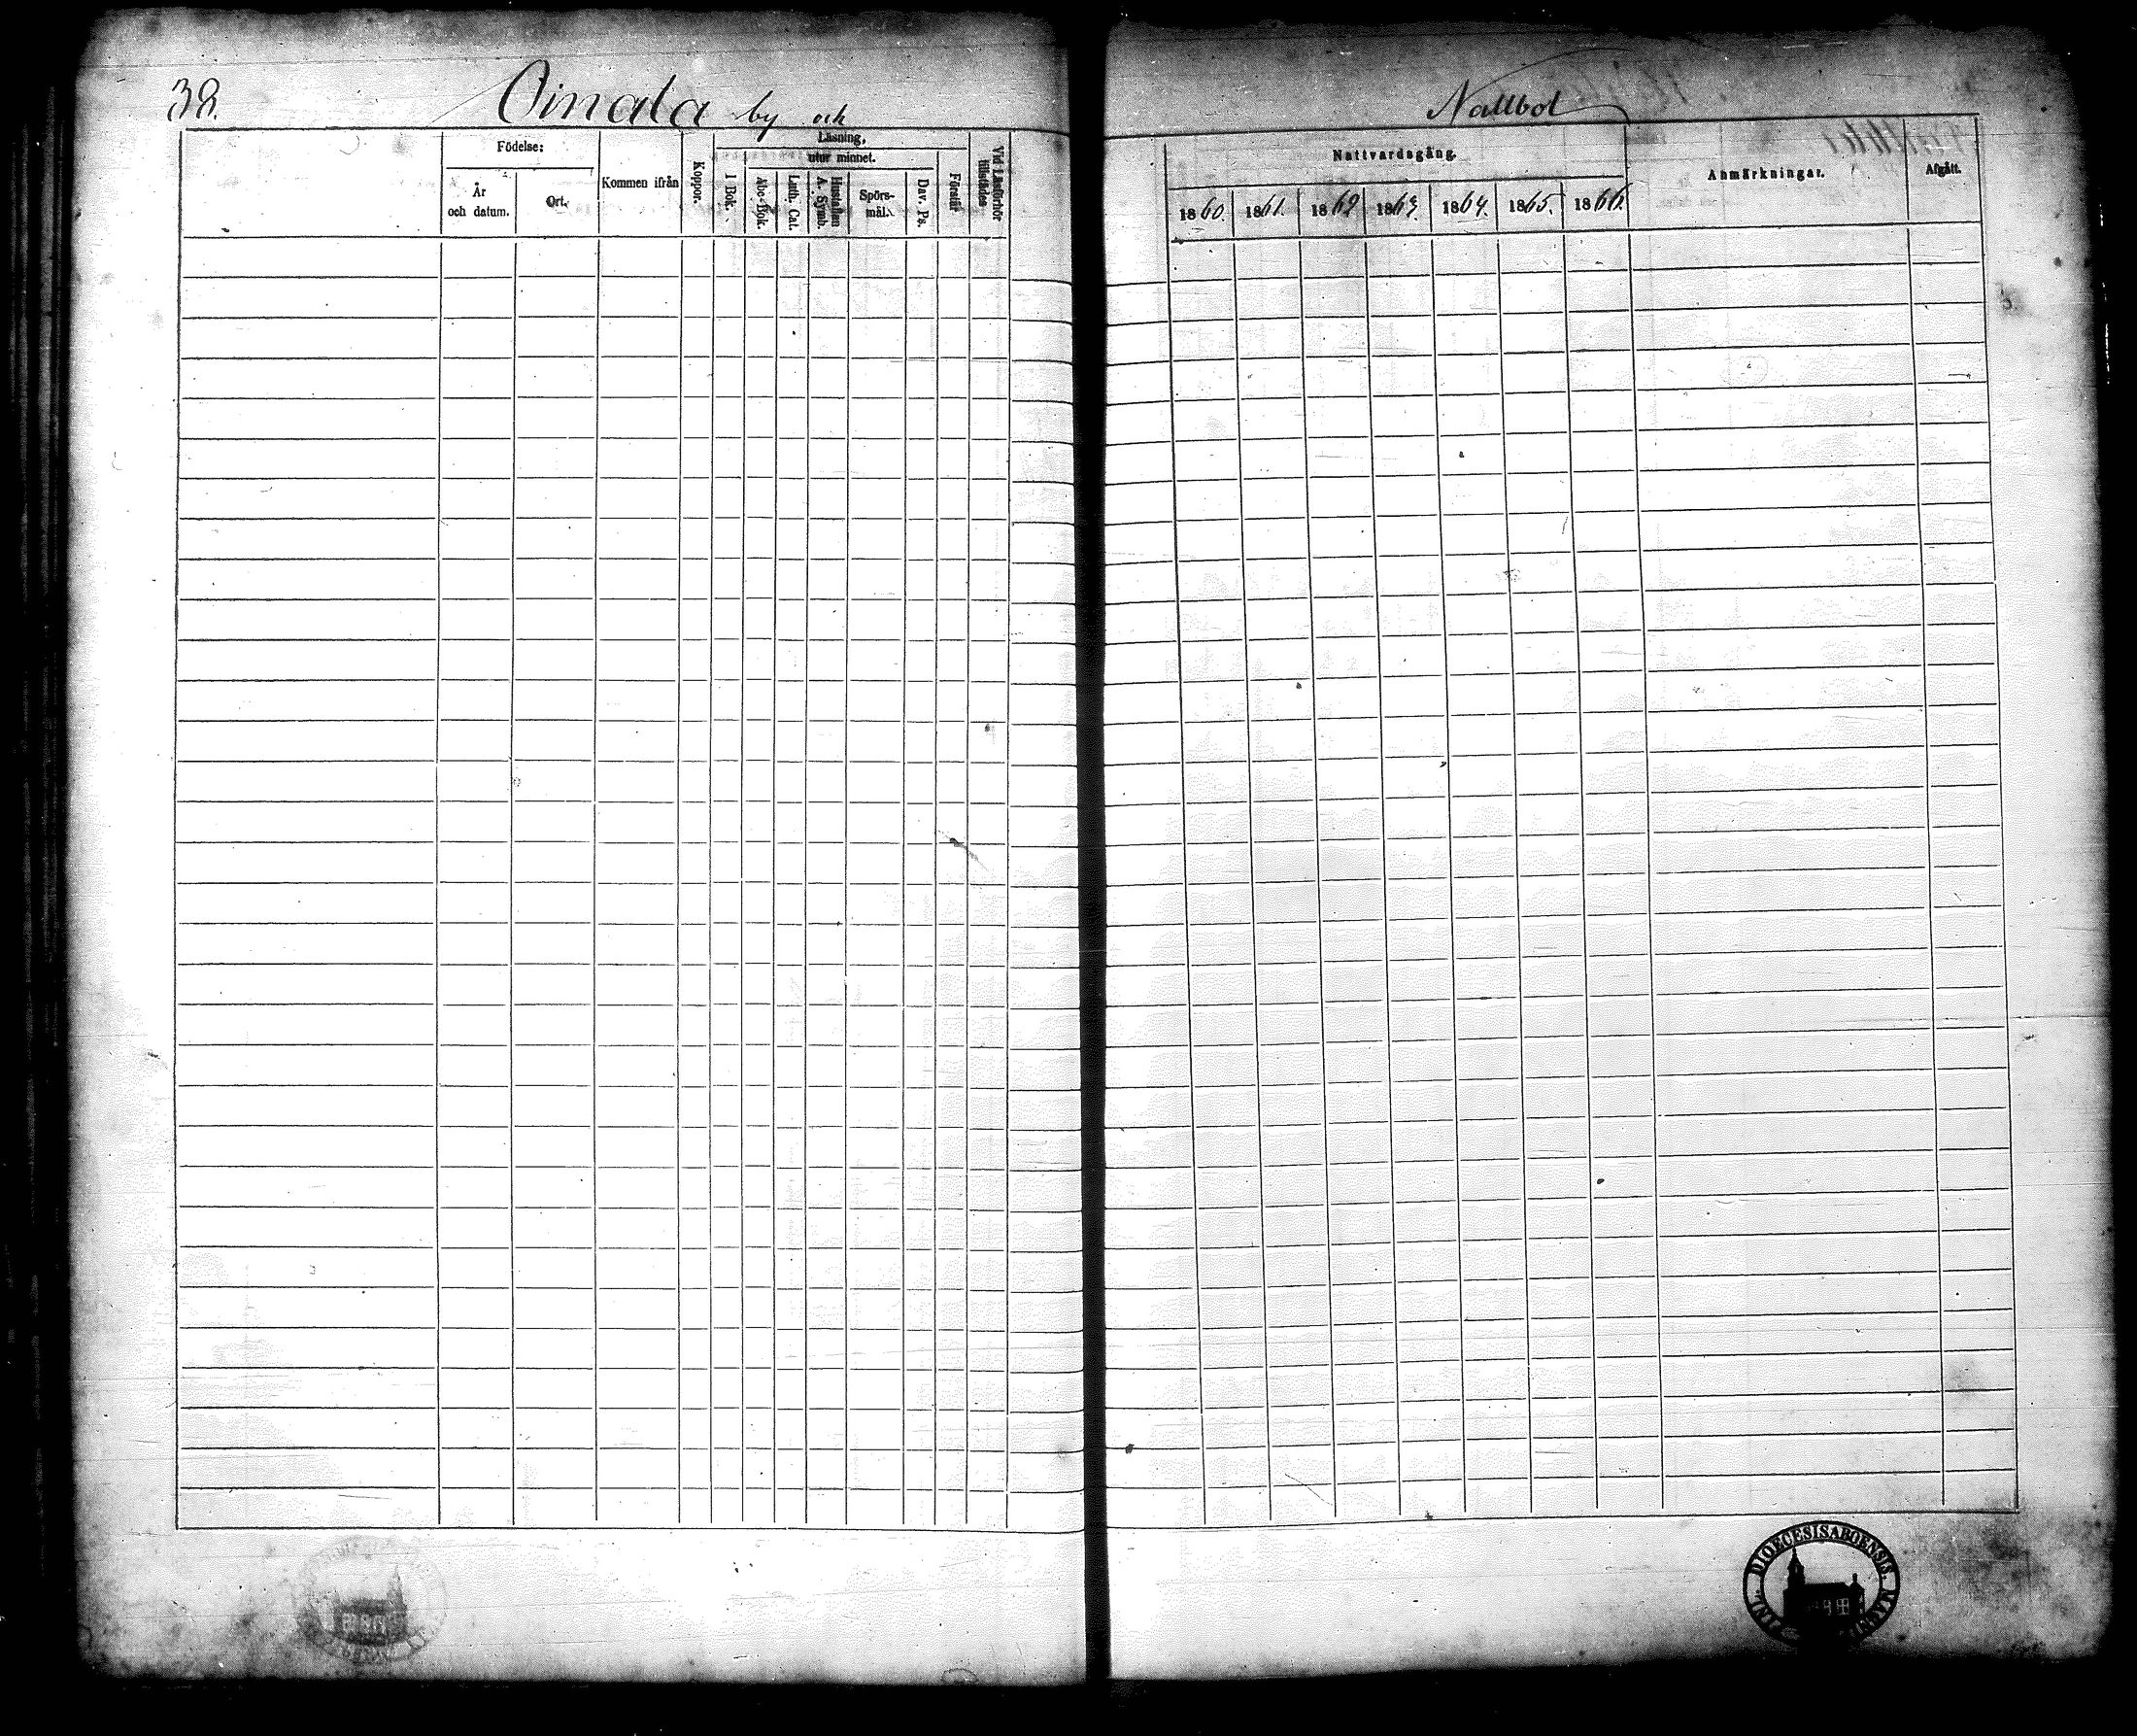 38.
Oinala by och
Nattbol
Födelse:
År
och datum.
Ort.
Kommen ifrån
Koppor.
Läsning,
utur minnet.
I Bok.
Abc-Bok.
Luth. Cat.
Hustaflan
A. Symb.
Spörs-
mål.
Dav. Ps.
Förstår
Vid Läsförhör
tillstädes
Nattvardsgång.
1860. 1861. 1862 1863. 1864. 1865. 1866.
Anmärkningar.
Afgått.
DIOECESIS ABOENSIS. MAGNI